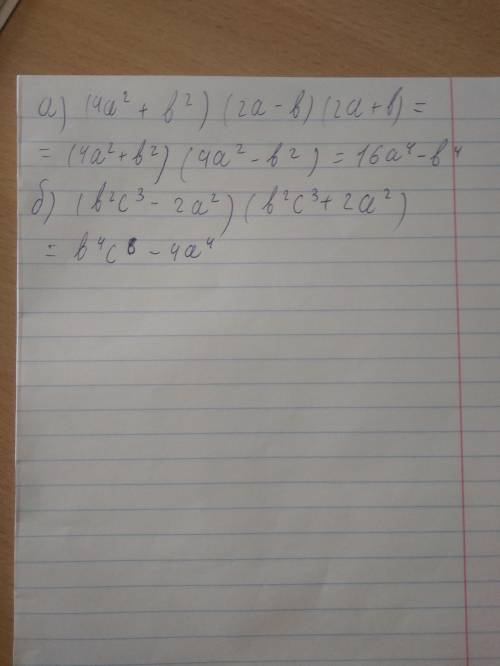 а) (4a² + b²) (2a - b) (2a + b) =
= (4a² + b²) (4a² - b²) = 16a⁴ - b⁴
б) (b²c³ - 2a²) (b²c³ + 2a²)
= b⁴c⁶ - 4a⁴